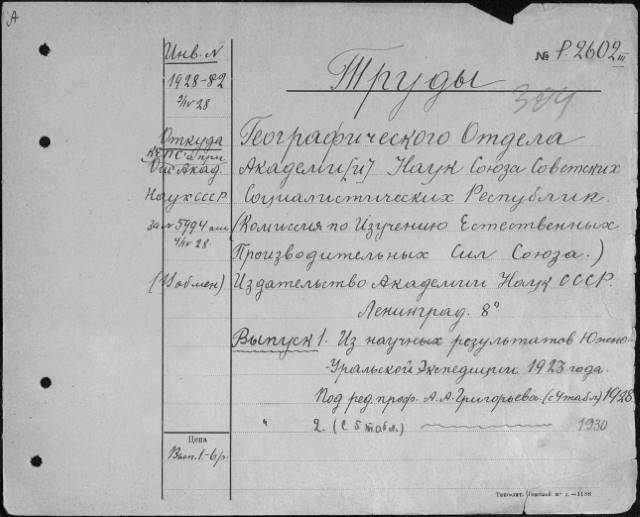 А
Инв. N
1928-82
2/IV 28
Откуда
КЕПС'а при
Акад.
Наук СССР
за № 5994
4/IV 28.
(В обмен)
Цена
Вып. 1-6 р.
№ Р. 2602 III
Труды
Географического Отдела
Академи[и] Наук Союза Советских
Социалистических Республик.
(Комиссия по Изучению Естественных
Производительных Сил Союза.)
Издательство Академии Наук СССР.
Ленинград. 8°
Выпуск 1. Из научных результатов Южно-
-Уральской Экспедиции 1923 года.
Под ред. проф. А.А. Григорьева. (с 4 табл.) 1928.
" 2. (с 5 табл.) 1930
Типо-лит. —1188